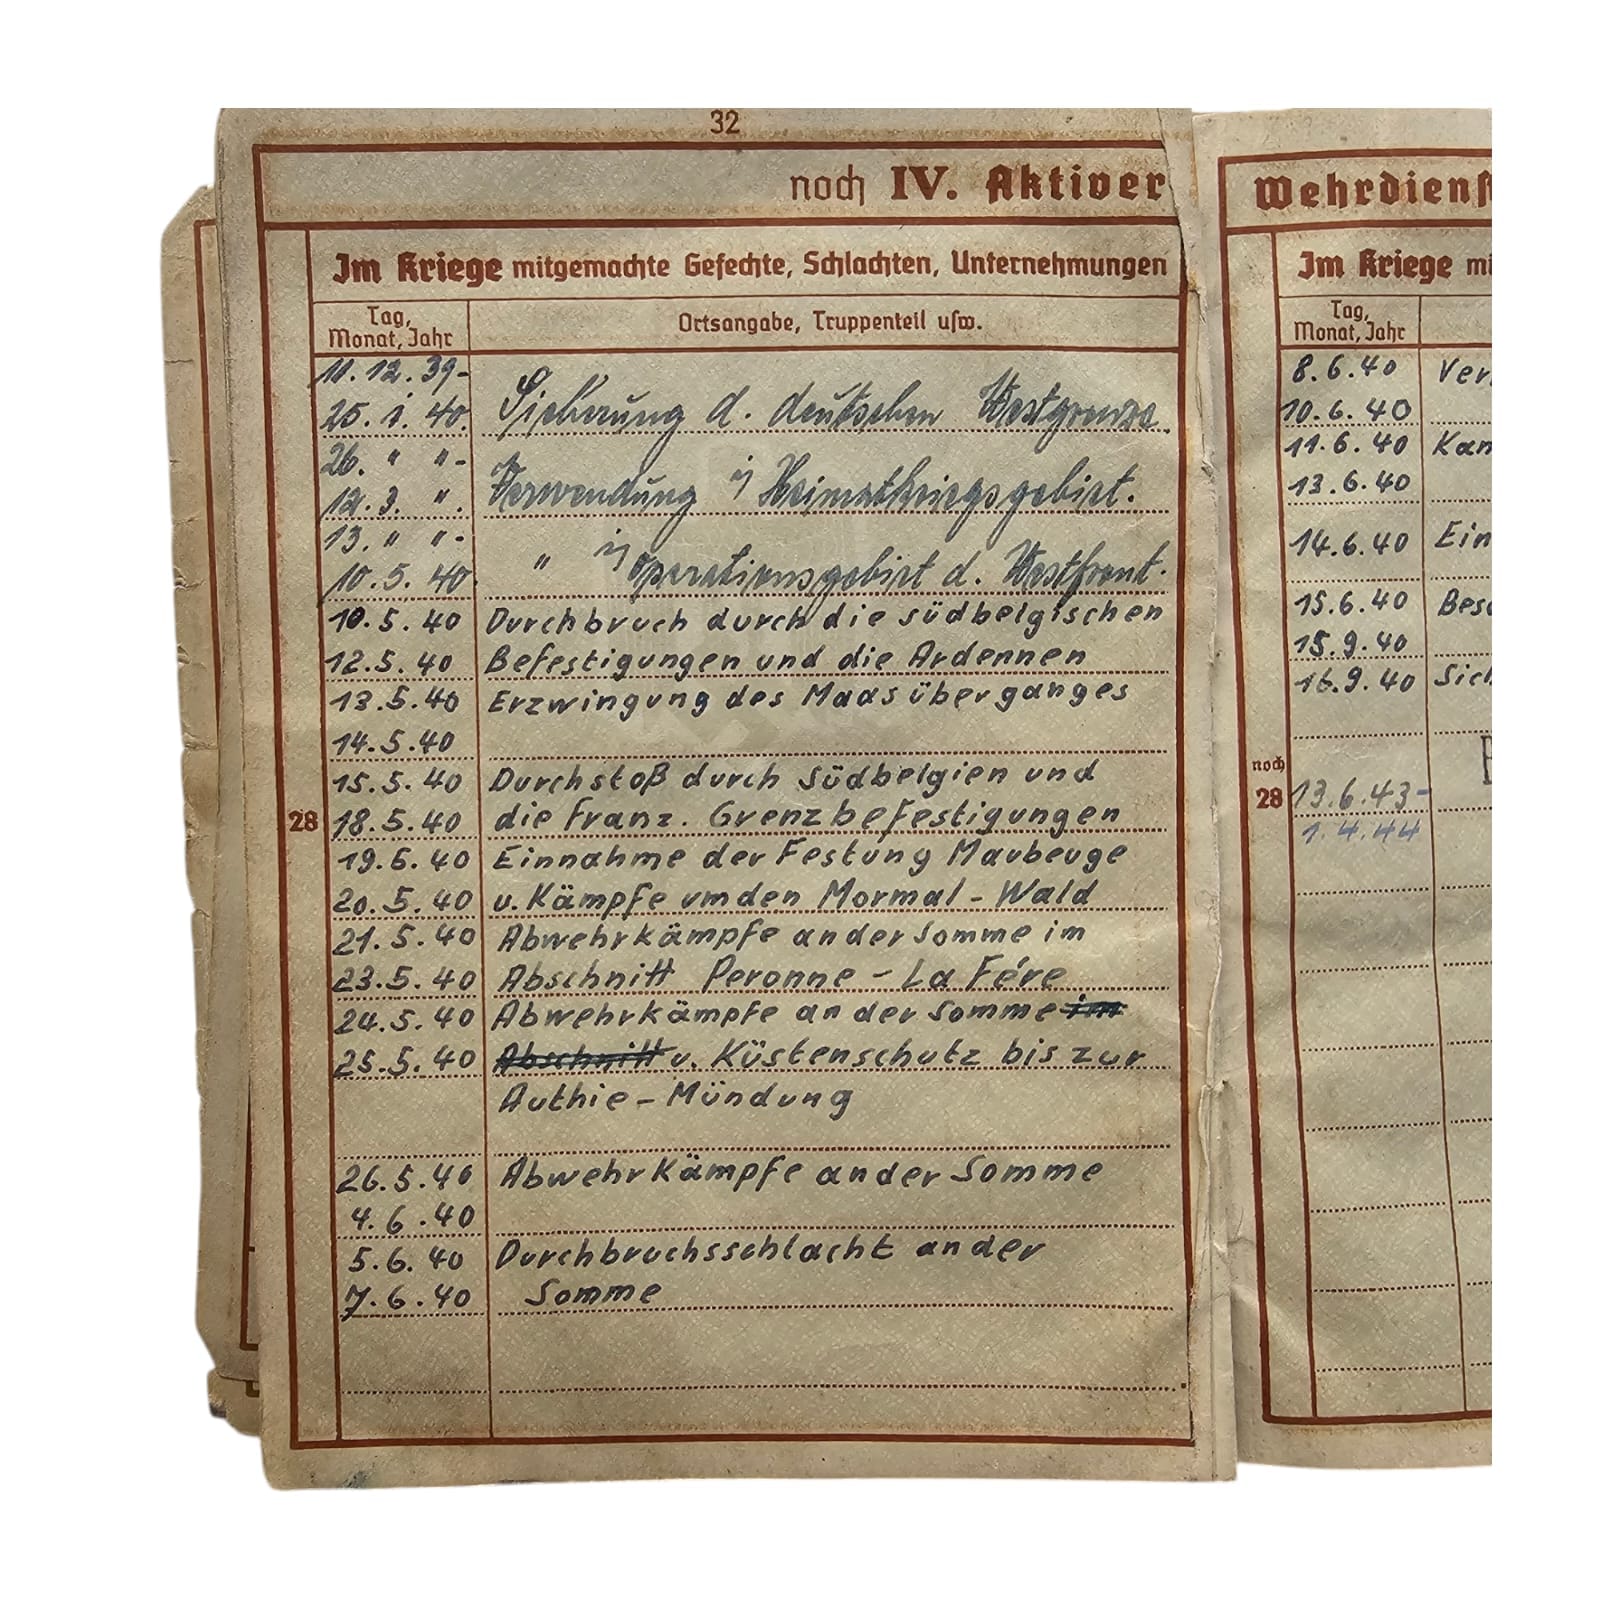 32
noch IV. Aktiver
Im Kriege mitgemachte Gefechte, Schlachten, Unternehmungen
Tag, Monat, Jahr
Ortsangabe, Truppenteil usw.
11. 12. 39-
25. 1. 40. Sicherung d. deutschen Westgrenze.
26. " "-
12. 3. ". Verwendung i/ Heimatkriegsgebiet.
13. " "-
10. 5. 40. " i/ Operationsgebiet d. Westfront.
10. 5. 40 Durchbruch durch die südbelgischen
12. 5. 40 Befestigungen und die Ardennen
13. 5. 40 Erzwingung des Maasüberganges
14. 5. 40
15. 5. 40 Durchstoß durch Südbelgien und
28
18. 5. 40 die Franz. Grenzbefestigungen
19. 6. 40 Einnahme der Festung Maubeuge
20. 5. 40 u. Kämpfe um den Mormal - Wald
21. 5. 40 Abwehrkämpfe an der Somme im
23. 5. 40 Abschnitt Peronne - La Fére
24. 5. 40 Abwehrkämpfe an der Somme im
25. 5. 40 Abschnitt u. Küstenschutz bis zur
Authie - Mündung
26. 5. 40 Abwehrkämpfe an der Somme
4. 6. 40
5. 6. 40 Durchbruchsschlacht an der
7. 6. 40 Somme
Wehrdienst
Im Kriege mi
Tag, Monat, Jahr
8. 6. 40 Ver
10. 6. 40
11. 6. 40 Kam
13. 6. 40
14. 6. 40 Ein
15. 6. 40 Bes
15. 9. 40
16. 9. 40 Sich
noch
28
13. 6. 43-
1. 4. 44